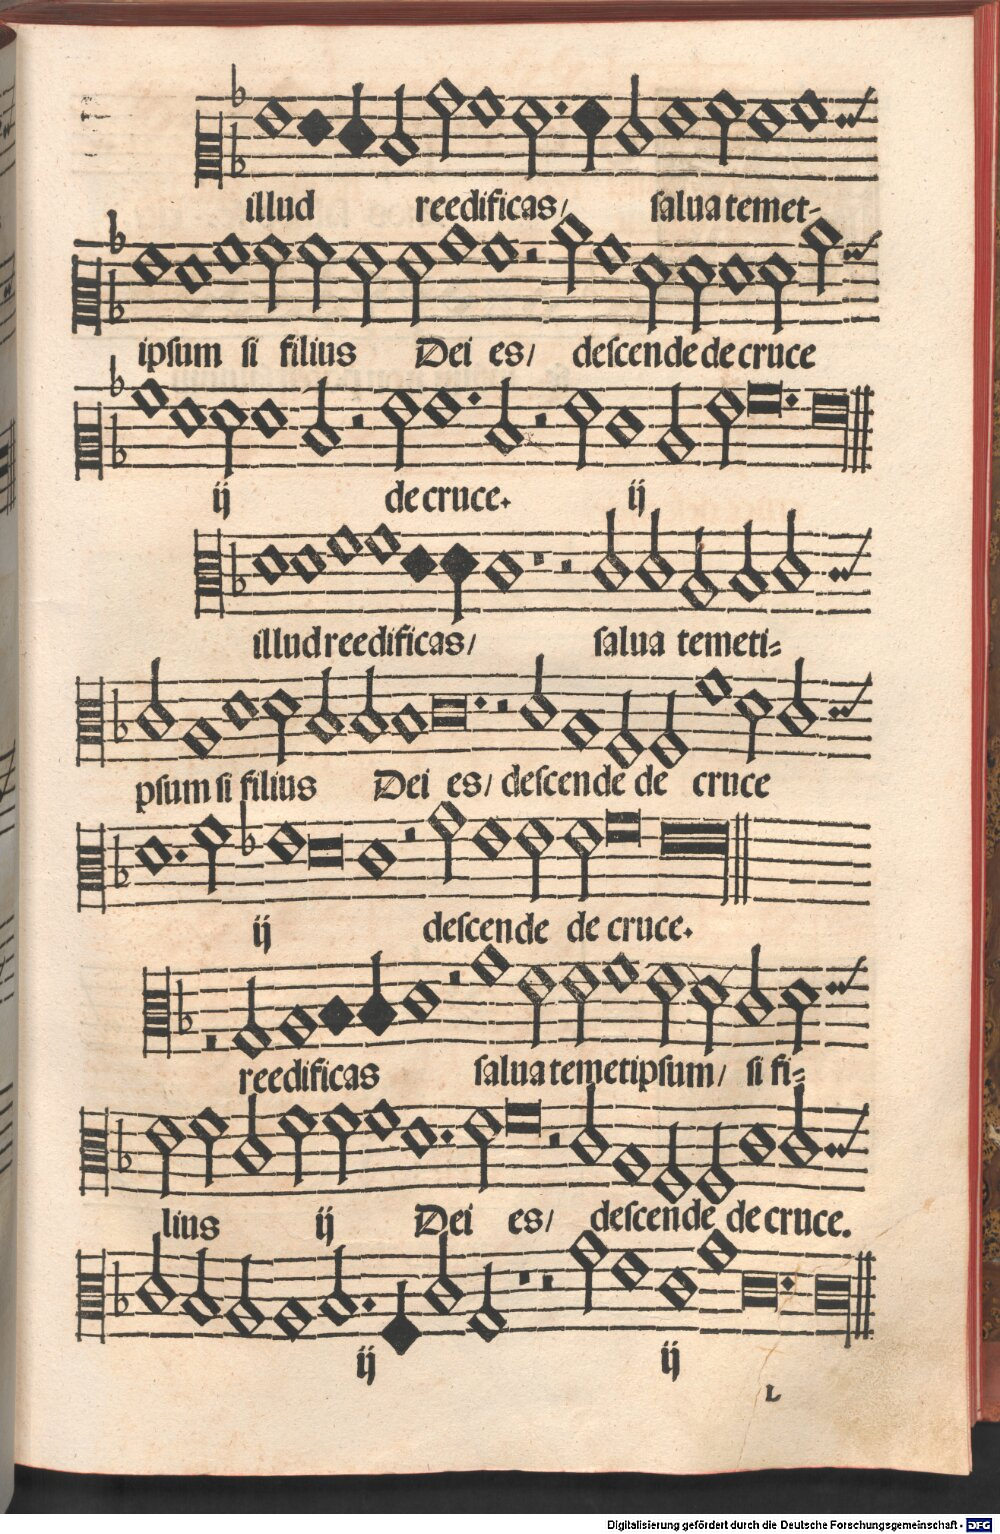 illud reedificas/ ſalua temet-
ipſum ſi filius Dei es/ deſcende de cruce
ij de cruce. ij
illud reedificas/ ſalua temeti-
pſum ſi filius Dei es/ deſcende de cruce
ij deſcende de cruce.
reedificas ſalua temetipſum/ ſi fi-
lius ij Dei es/ deſcende de cruce.
ij ij
L
Digitalisierung gefördert durch die Deutsche Forschungsgemeinschaft - DFG